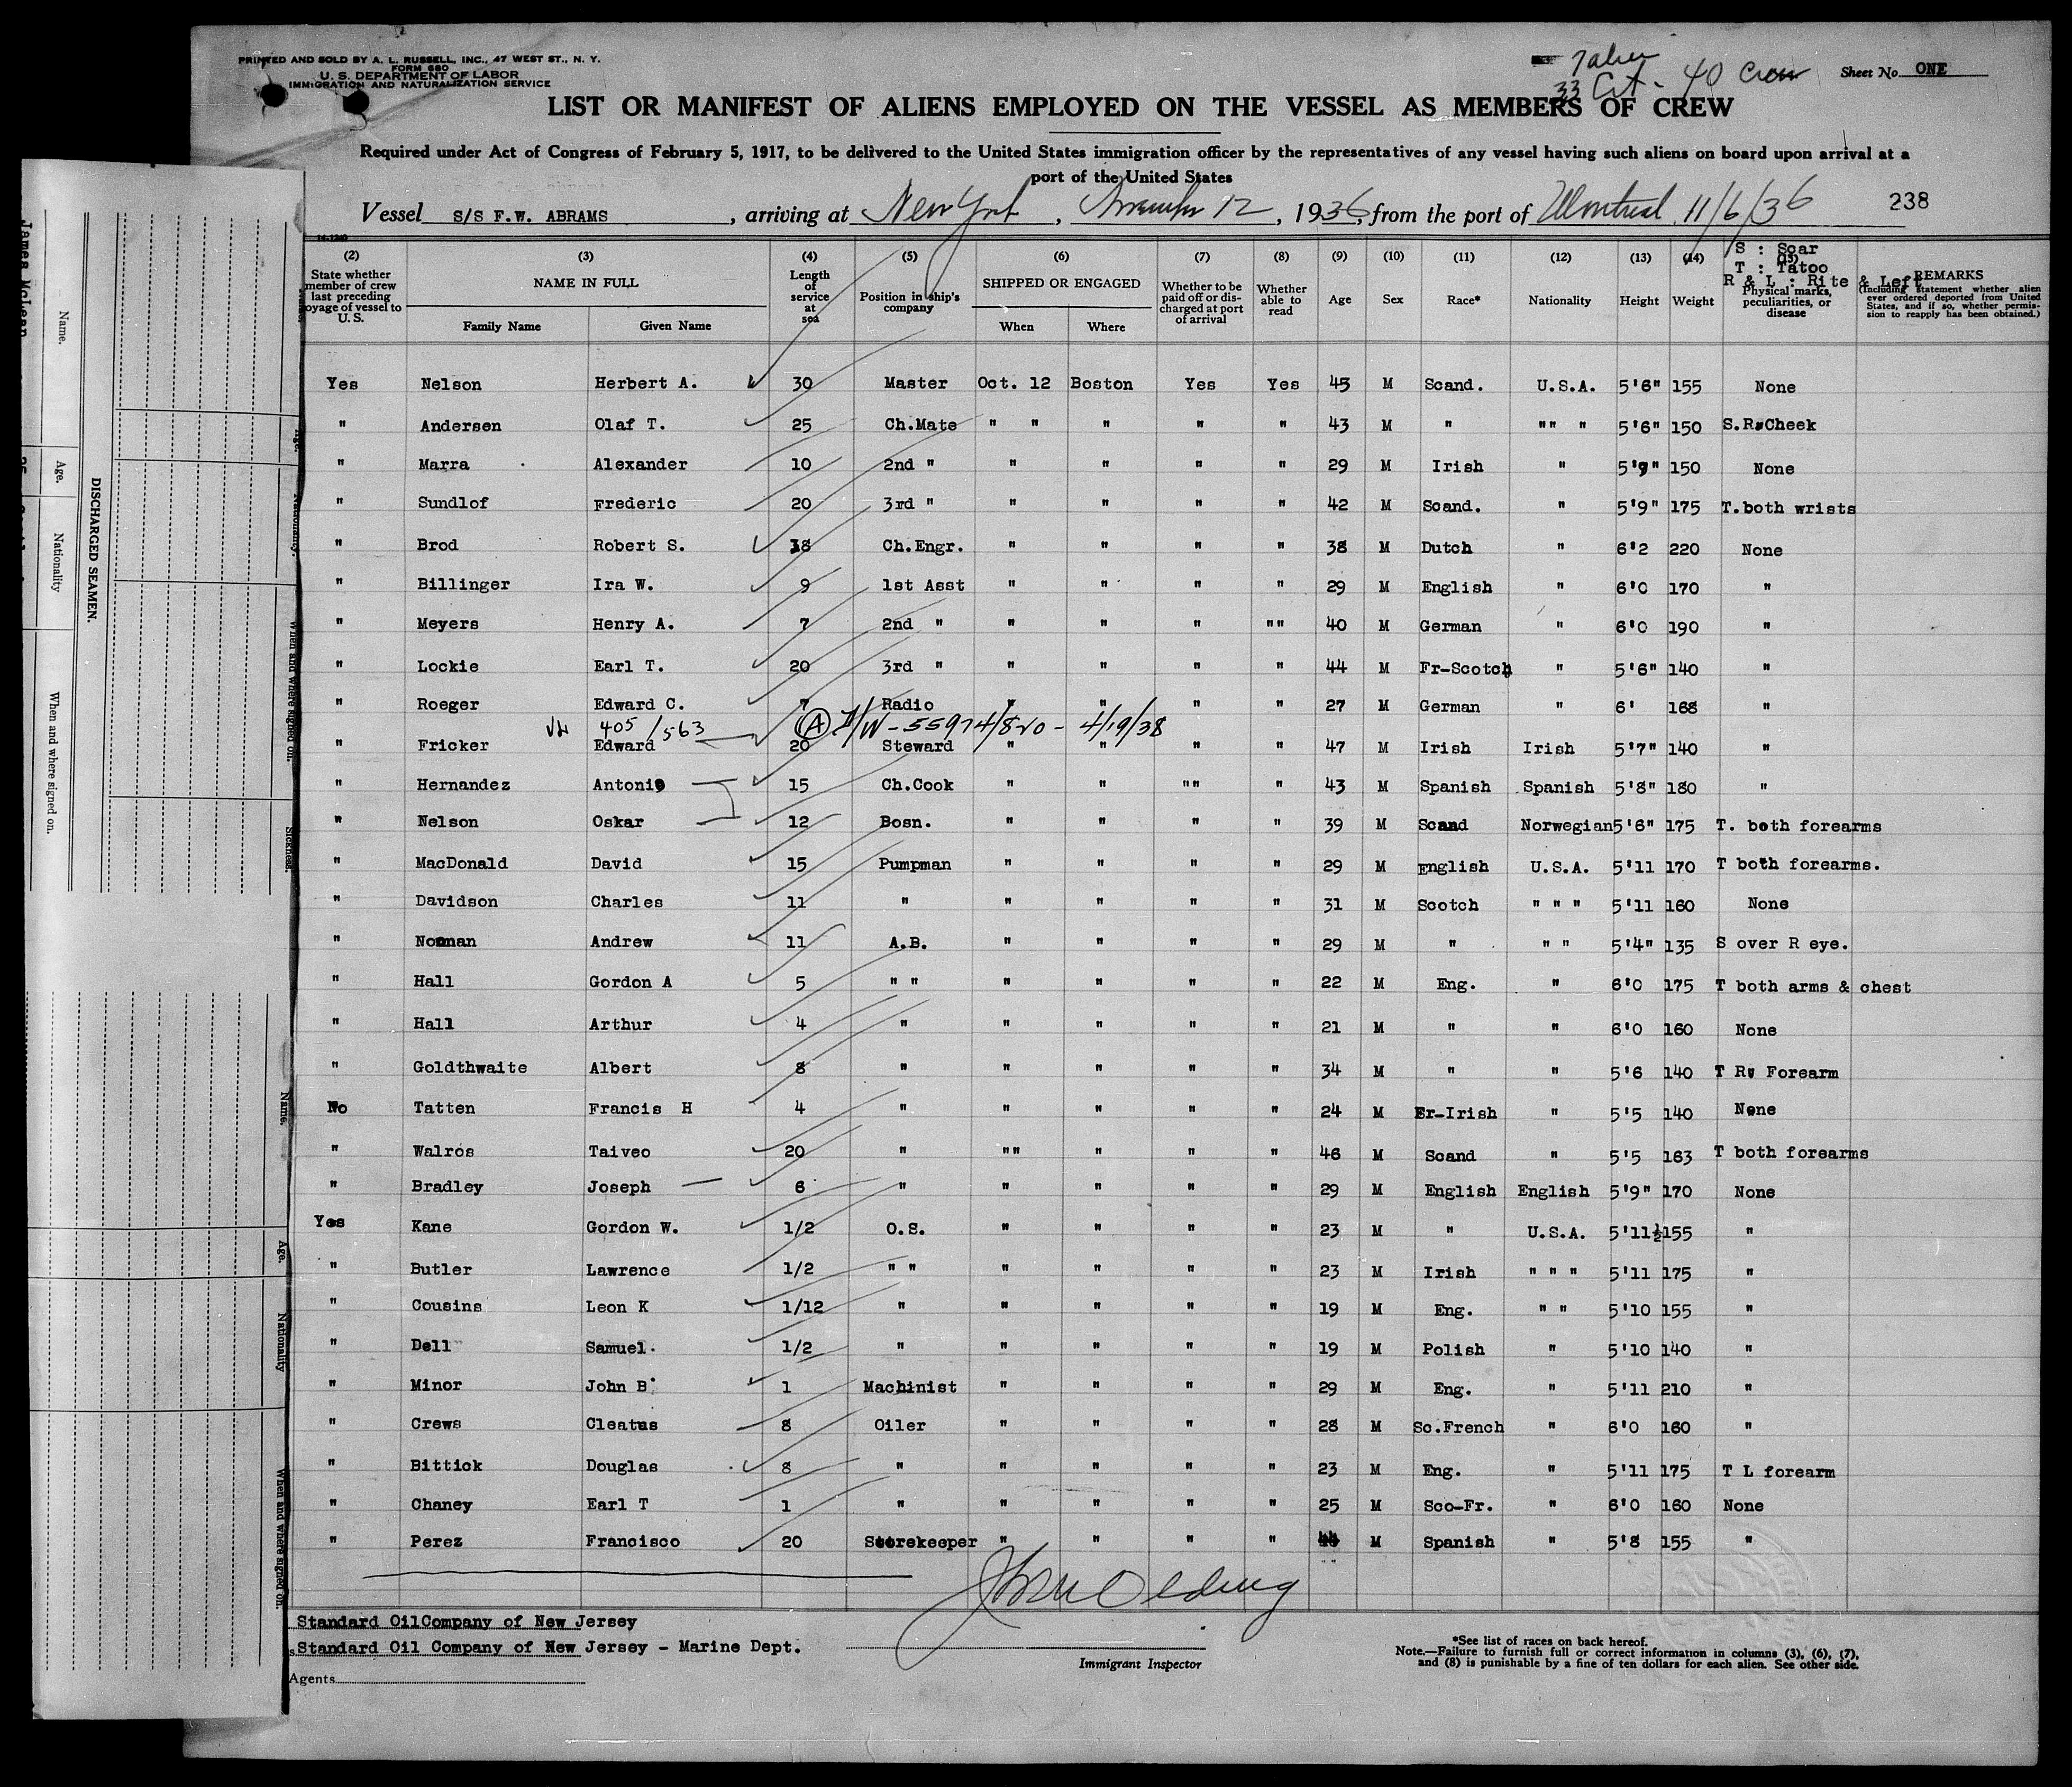 PRINTED AND SOLD BY A. L. RUSSELL, INC., 47 WEST ST., N. Y.
FORM 680
U. S. DEPARTMENT OF LABOR
IMMIGRATION AND NATURALIZATION SERVICE
33 Cit - 40 Crew
Sheet No. ONE
LIST OR MANIFEST OF ALIENS EMPLOYED ON THE VESSEL AS MEMBERS OF CREW
Required under Act of Congress of February 5, 1917, to be delivered to the United States immigration officer by the representatives of any vessel having such aliens on board upon arrival at a
port of the United States
Vessel S/S F.W. ABRAMS, arriving at New York, November 12, 1936, from the port of Montreal 11/6/36 238
S : Scar
T : Tatoo
R & L : Rite & Left
(2) State whether member of crew last preceding voyage of vessel to U. S.
(3) NAME IN FULL Family Name Given Name
(4) Length of service at sea
(5) Position in ship's company
(6) SHIPPED OR ENGAGED When Where
(7) Whether to be paid off or discharged at port of arrival
(8) Whether able to read
(9) Age
(10) Sex
(11) Race*
(12) Nationality
(13) Height
(14) Weight
(15) Physical marks, peculiarities, or disease
REMARKS (Including statement whether alien ever ordered deported from United States, and if so, whether permission to reapply has been obtained.)
Yes Nelson Herbert A. 30 Master Oct. 12 Boston Yes Yes 45 M Scand. U.S.A. 5'6" 155 None
" Andersen Olaf T. 25 Ch.Mate " " " " " 43 M " "" " 5'6" 150 S.R.Cheek
" Marra Alexander 10 2nd " " " " " 29 M Irish " 5'9" 150 None
" Sundlof Frederic 20 3rd " " " " " 42 M Scand. " 5'9" 175 T.both wrists
" Brod Robert S. 18 Ch.Engr. " " " " 38 M Dutch " 6'2 220 None
" Billinger Ira W. 9 1st Asst " " " " 29 M English " 6'0 170 "
" Meyers Henry A. 7 2nd " " " " "" 40 M German " 6'0 190 "
" Lockie Earl T. 20 3rd " " " " " 44 M Fr-Scotch " 5'6" 140 "
" Roeger Edward C. 7 Radio " " " " 27 M German " 6' 168 "
405/563 (A) I/W - 55974/820 - 4/19/38
" Fricker Edward 20 Steward " " " " 47 M Irish Irish 5'7" 140 "
" Hernandez Antonio 15 Ch.Cook " " "" " 43 M Spanish Spanish 5'8" 180 "
" Nelson Oskar 12 Bosn. " " " " 39 M Scand Norwegian 5'6" 175 T. both forearms
" MacDonald David 15 Pumpman " " " " 29 M English U.S.A. 5'11 170 T both forearms.
" Davidson Charles 11 " " " " " 31 M Scotch " " " 5'11 160 None
" Noonan Andrew 11 A.B. " " " " 29 M " " " 5'4" 135 S over R eye.
" Hall Gordon A 5 " " " " " " 22 M Eng. " 6'0 175 T both arms & chest
" Hall Arthur 4 " " " " " 21 M " " 6'0 160 None
" Goldthwaite Albert 8 " " " " " 34 M " " 5'6 140 T R. Forearm
No Tatten Francis H 4 " " " " " 24 M Er-Irish " 5'5 140 None
" Walros Taiveo 20 " "" " " " 46 M Scand " 5'5 163 T both forearms
" Bradley Joseph 6 " " " " " 29 M English English 5'9" 170 None
Yes Kane Gordon W. 1/2 O.S. " " " " 23 M " U.S.A. 5'11½ 155 "
" Butler Lawrence 1/2 " " " " " " 23 M Irish " " " 5'11 175 "
" Cousins Leon K 1/12 " " " " " 19 M Eng. " " 5'10 155 "
" Dell Samuel. 1/2 " " " " " 19 M Polish " 5'10 140 "
" Minor John B 1 Machinist " " " " 29 M Eng. " 5'11 210 "
" Crews Cleatus 8 Oiler " " " " 28 M Sc.French " 6'0 160 "
" Bittick Douglas 8 " " " " " 23 M Eng. " 5'11 175 T L forearm
" Chaney Earl T 1 " " " " " 25 M Sco-Fr. " 6'0 160 None
" Perez Francisco 20 Storekeeper " " " " 44 M Spanish " 5'8 155 "
Standard OilCompany of New Jersey
Standard Oil Company of New Jersey - Marine Dept.
Agents
Immigrant Inspector
*See list of races on back hereof.
Note.—Failure to furnish full or correct information in columns (3), (6), (7),
and (8) is punishable by a fine of ten dollars for each alien. See other side.
James McLean
Name.
Age.
Nationality
When and where signed on.
DISCHARGED SEAMEN.
Age.
Nationality.
When and where signed on.
Sickness.
Name.
Age.
Nationality
When and where signed on.